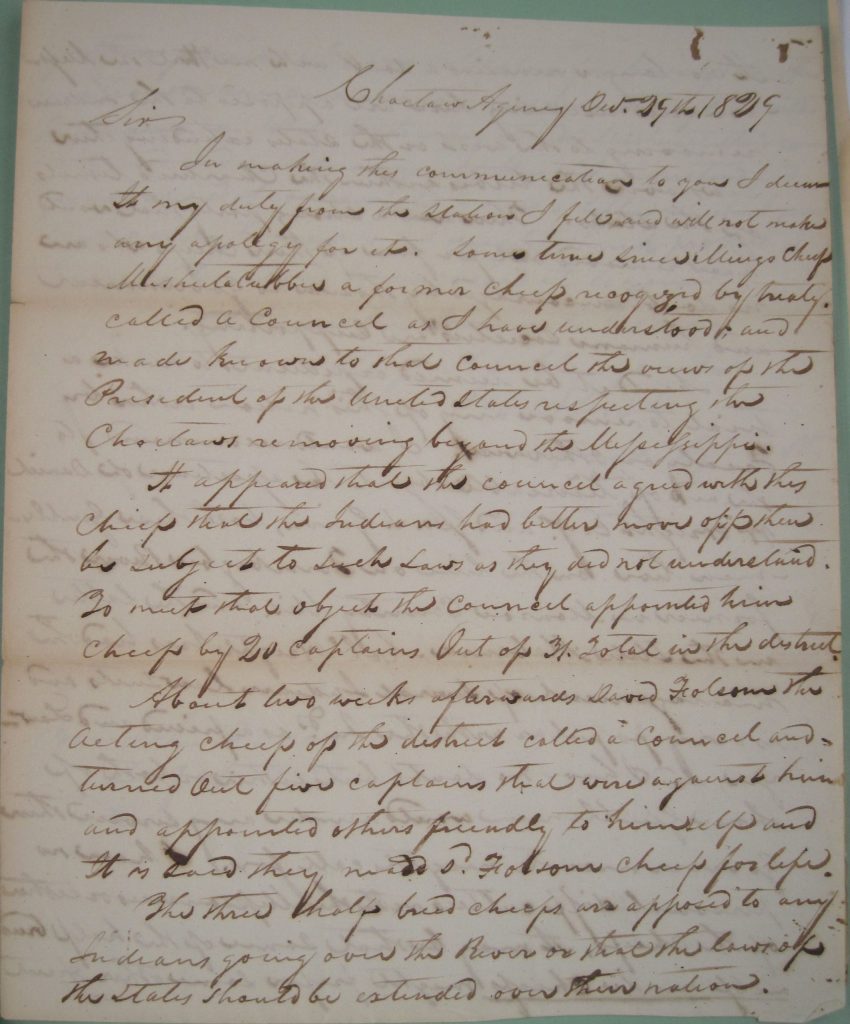 Choctaw Agency Dec. 29th 1829
Sir
In making this communication to you I deem
It my duty from the station I fill and will not make
any apology for it. Some time since Mingo Cheef
Musheulatubbee a former cheef recognized by treaty.
called a Council as I have understood, and
made known to that council the views of the
President of the United States respecting the
Choctaws removing beyond the Missippi.
It appeared that the council agreed with this
cheef that the Indians had better move off then
be subject to such laws as they did not understand.
To meet that object the council appointed him
cheef by 20 captains Out of 31. Total in the district.
About two weeks afterwards David Folsom the
acting cheef of the district called a Council and
turned Out five captains that were against him
and appointed others friendly to himself and
It is said they made D. Folsom cheef for life.
The three half breed cheefs are apposed to any
Indians going over the River or that the laws of
the States should be extended over their nation.